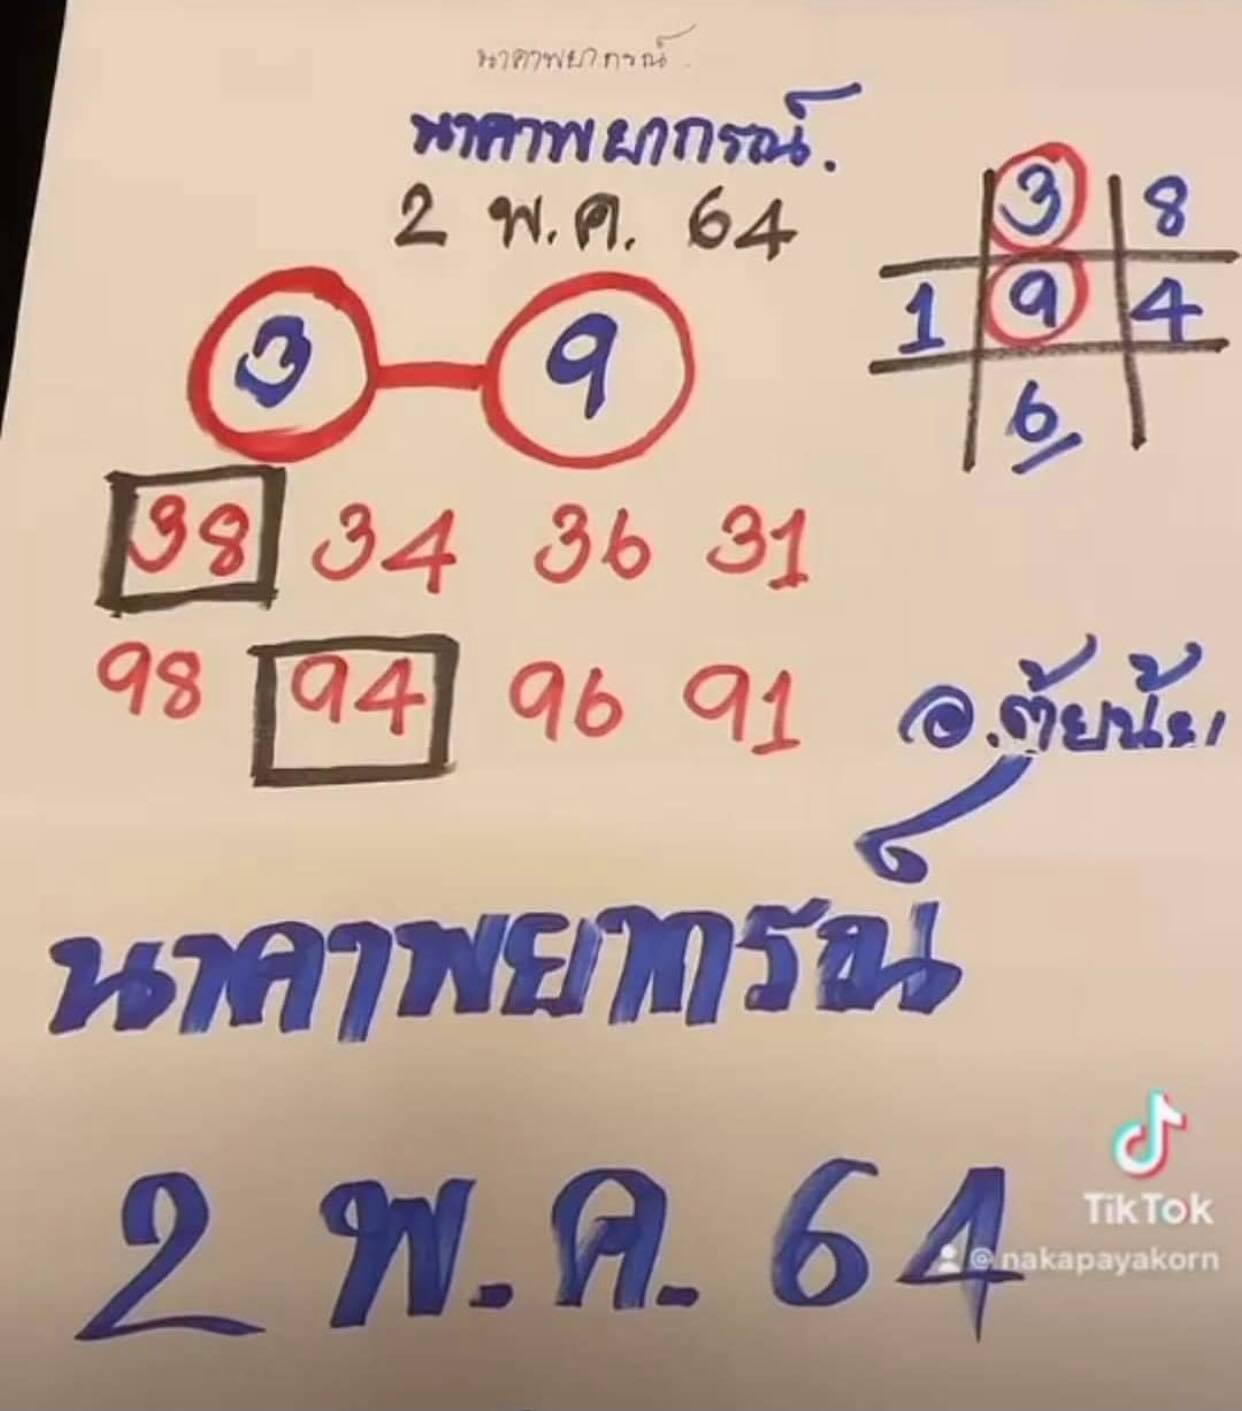 นาคาพยากรณ์.
นาคาพยากรณ์.
2 พ.ค. 64
3 8
1 9 4
6
3 9
38 34 36 31
98 94 96 91
อ.ตุ้ยนุ้ย
นาคาพยากรณ์
2 พ.ค. 64
TikTok
@nakapayakorn